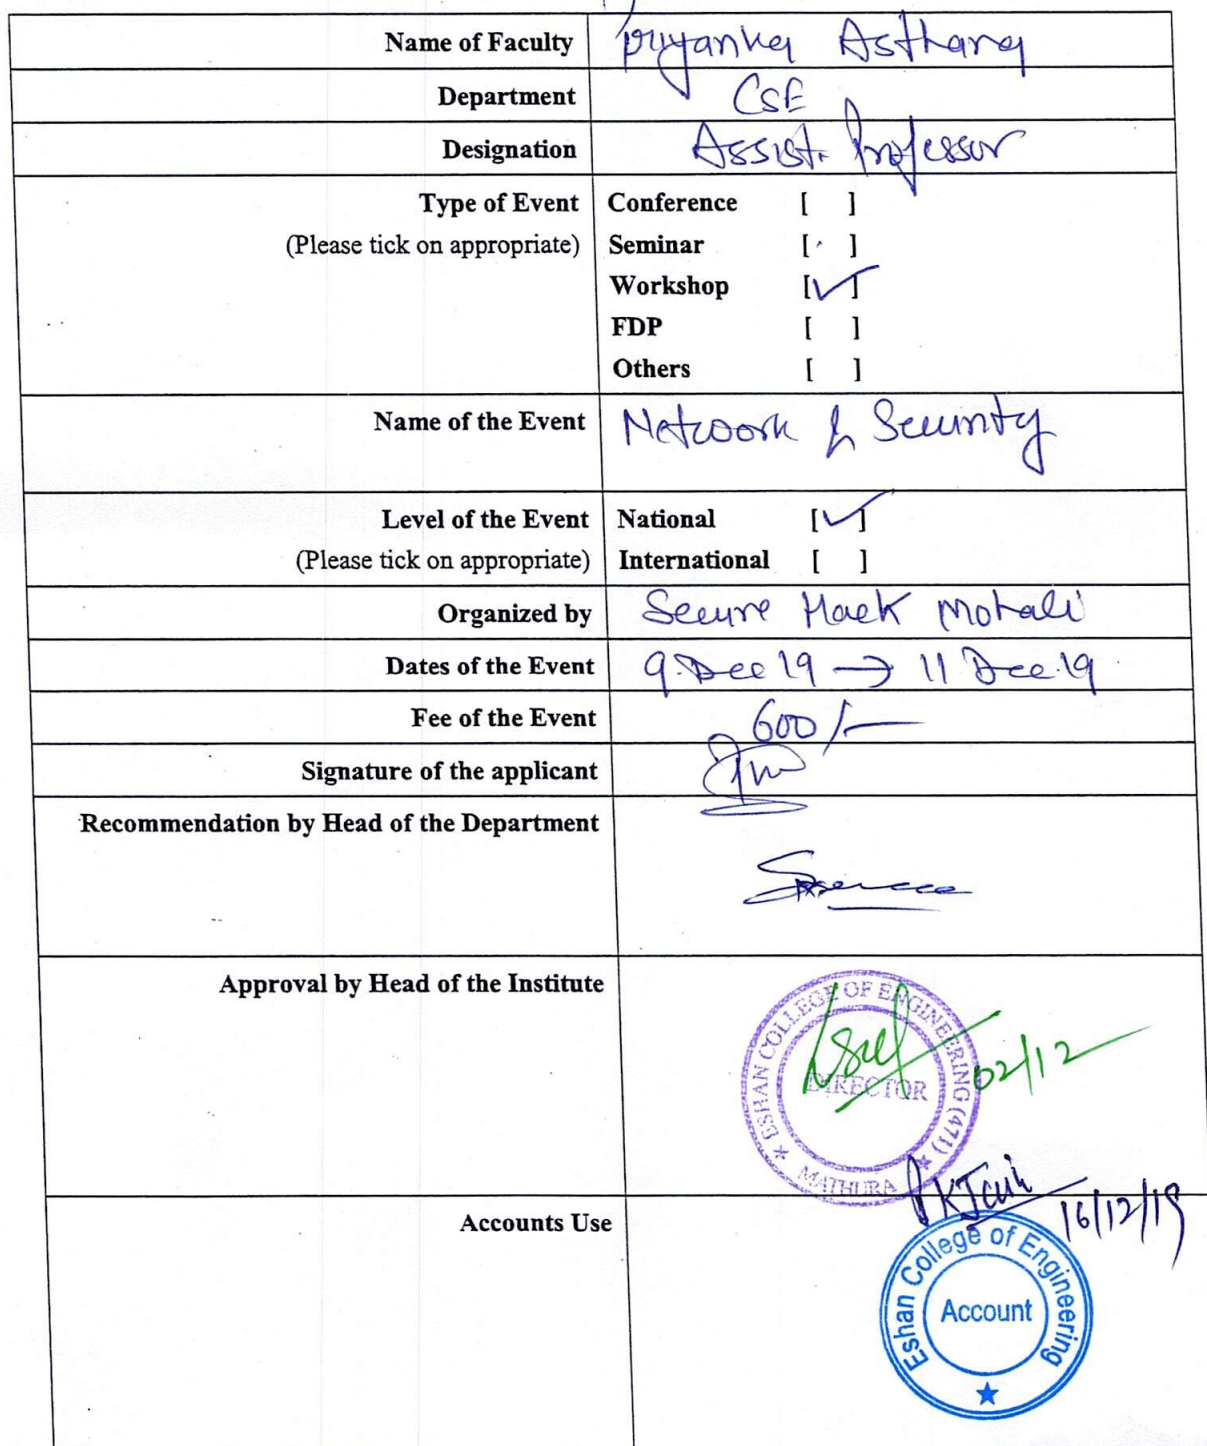 Name of Faculty Priyanka Asthana
Department CSE
Designation Assist. Professor
Type of Event Conference [ ]
(Please tick on appropriate) Seminar [ ]
Workshop [✓]
FDP [ ]
Others [ ]
Name of the Event Network & Security
Level of the Event National [✓]
(Please tick on appropriate) International [ ]
Organized by Secure Hack Mohali
Dates of the Event 9 Dec 19 → 11 Dec 19
Fee of the Event 600/-
Signature of the applicant
Recommendation by Head of the Department
Approval by Head of the Institute
ESHAN COLLEGE OF ENGINEERING (471)
DIRECTOR
02/12
MATHURA
PKJain
16/12/19
Accounts Use
Eshan College of Engineering
Account